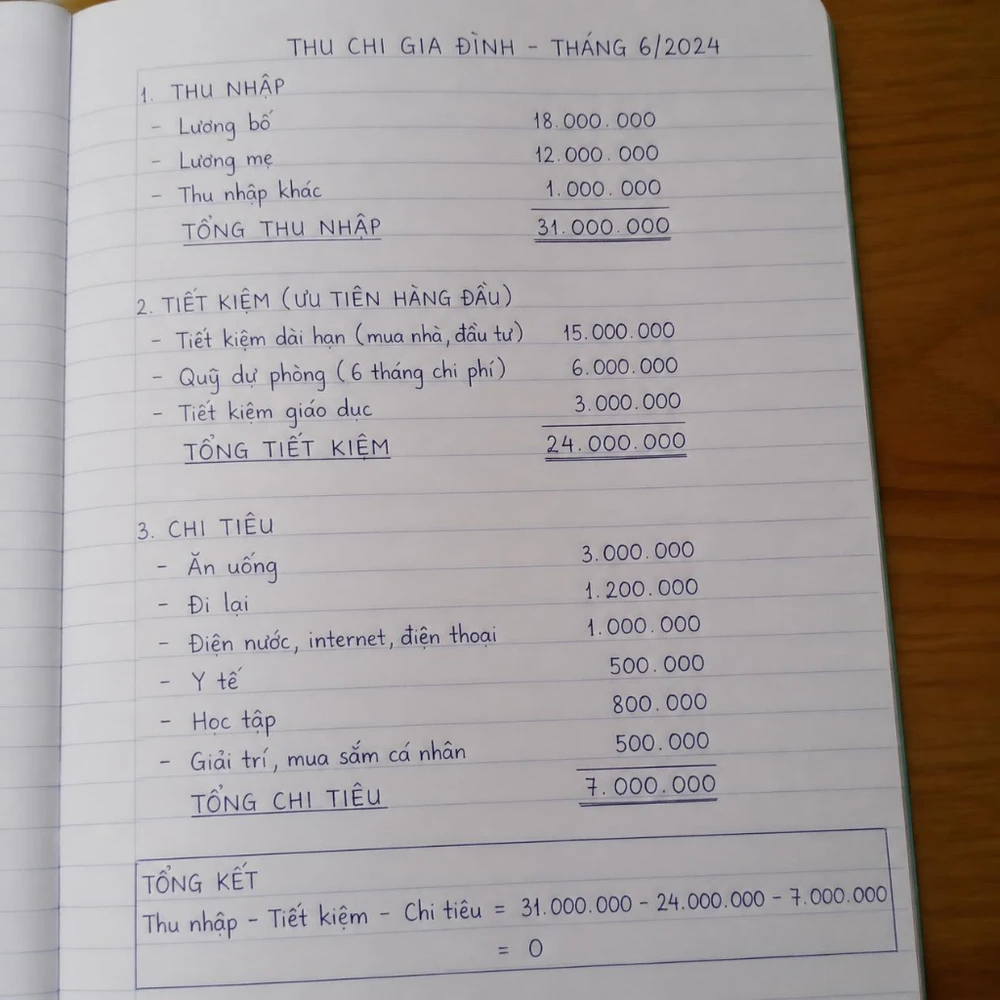 THU CHI GIA ĐÌNH - THÁNG 6/2024
1. THU NHẬP
- Lương bố 18.000.000
- Lương mẹ 12.000.000
- Thu nhập khác 1.000.000
TỔNG THU NHẬP 31.000.000
2. TIẾT KIỆM (ƯU TIÊN HÀNG ĐẦU)
- Tiết kiệm dài hạn (mua nhà, đầu tư) 15.000.000
- Quỹ dự phòng (6 tháng chi phí) 6.000.000
- Tiết kiệm giáo dục 3.000.000
TỔNG TIẾT KIỆM 24.000.000
3. CHI TIÊU
- Ăn uống 3.000.000
- Đi lại 1.200.000
- Điện nước, internet, điện thoại 1.000.000
- Y tế 500.000
- Học tập 800.000
- Giải trí, mua sắm cá nhân 500.000
TỔNG CHI TIÊU 7.000.000
TỔNG KẾT
Thu nhập - Tiết kiệm - Chi tiêu = 31.000.000 - 24.000.000 - 7.000.000
= 0